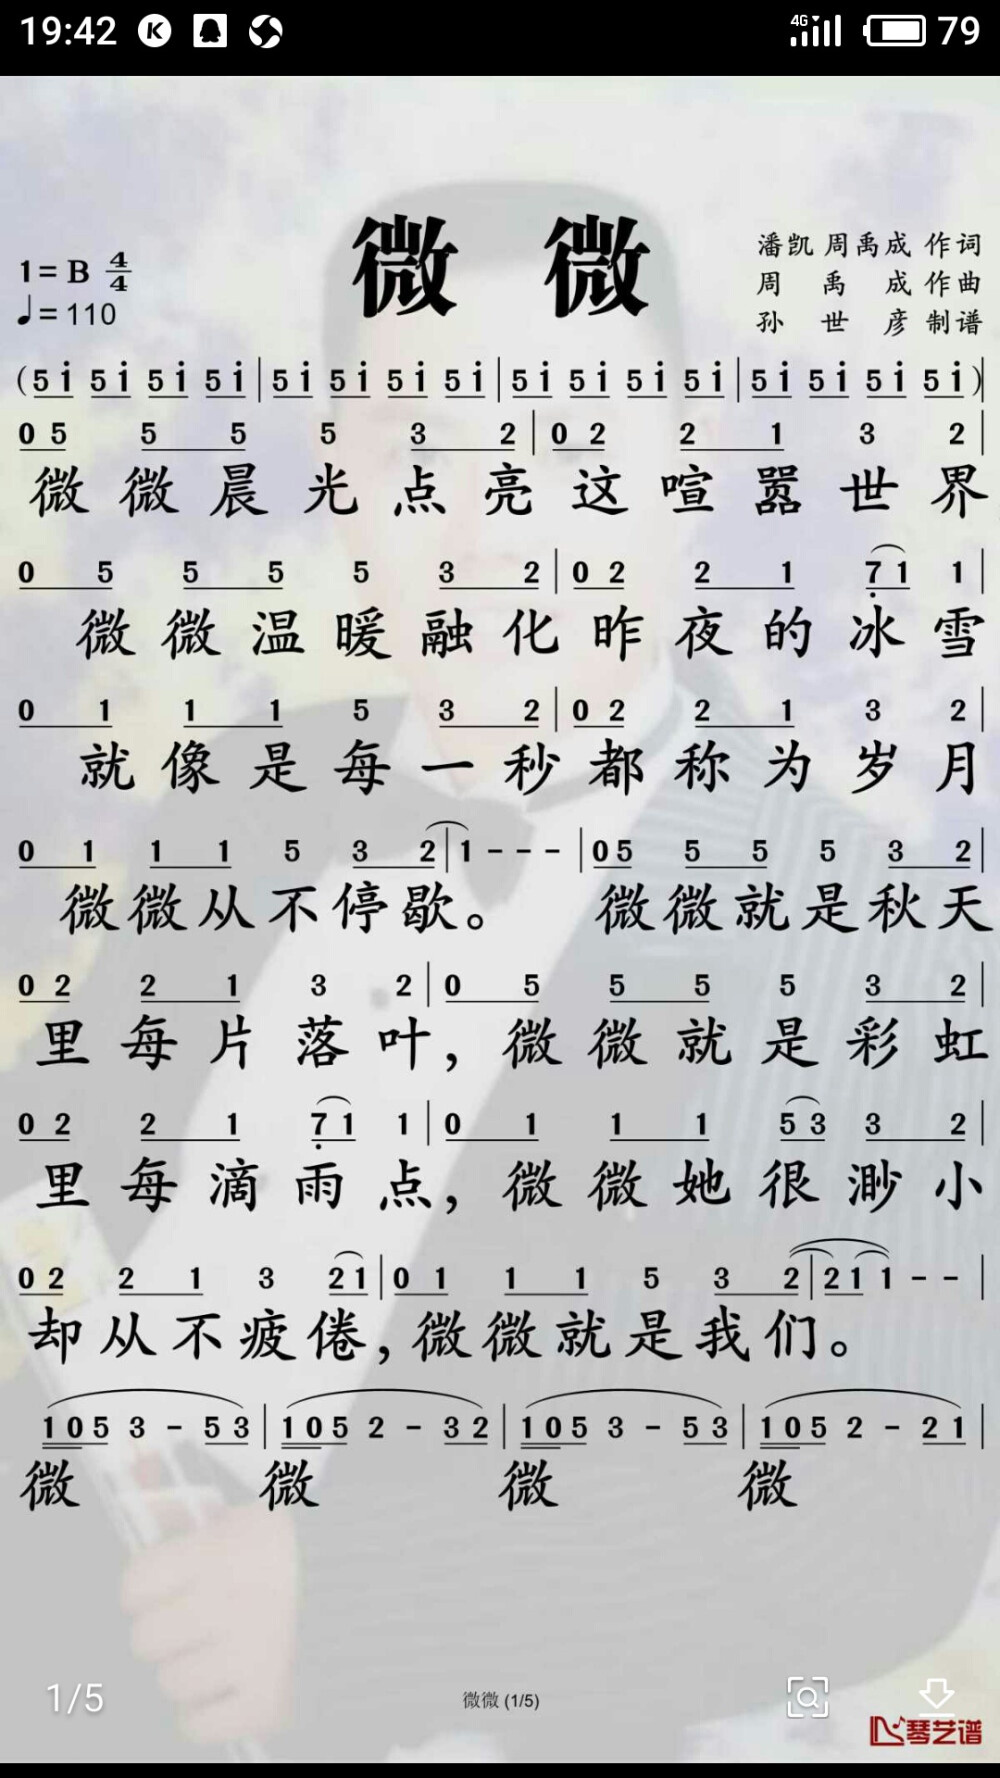 19:42 4G 79
微 微
1=B 4/4
♩=110
潘凯 周禹成 作词
周 禹 成 作曲
孙 世 彦 制谱
(5i 5i 5i 5i | 5i 5i 5i 5i | 5i 5i 5i 5i | 5i 5i 5i 5i)
0 5 5 5 5 3 2 | 0 2 2 1 3 2 |
微 微 晨 光 点 亮 这 喧 嚣 世 界
0 5 5 5 5 3 2 | 0 2 2 1 7̣ 1 1 |
微 微 温 暖 融 化 昨 夜 的 冰 雪
0 1 1 1 5 3 2 | 0 2 2 1 3 2 |
就 像 是 每 一 秒 都 称 为 岁 月
0 1 1 1 5 3 2 | 1 - - - | 0 5 5 5 5 3 2 |
微 微 从 不 停 歇。 微 微 就 是 秋 天
0 2 2 1 3 2 | 0 5 5 5 5 3 2 |
里 每 片 落 叶, 微 微 就 是 彩 虹
0 2 2 1 7̣ 1 1 | 0 1 1 1 5 3 3 2 |
里 每 滴 雨 点, 微 微 她 很 渺 小
0 2 2 1 3 2 1 | 0 1 1 1 5 3 2 | 2 1 1 - - |
却 从 不 疲 倦, 微 微 就 是 我 们。
1 0 5 3 - 5 3 | 1 0 5 2 - 3 2 | 1 0 5 3 - 5 3 | 1 0 5 2 - 2 1 |
微 微 微 微
1/5
微微 (1/5)
琴艺谱